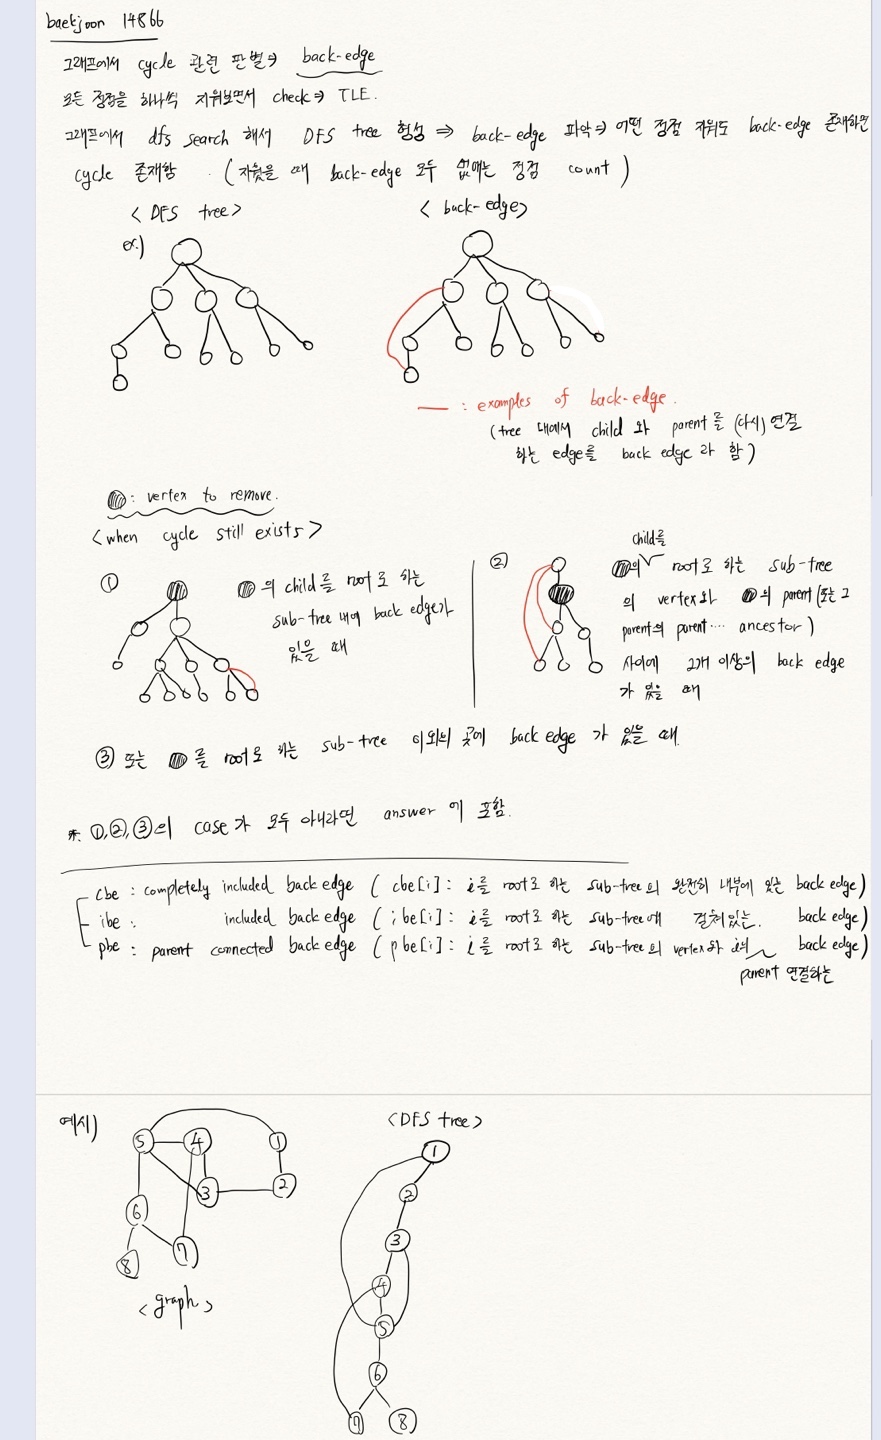 baekjoon 14866
그래프에서 cycle 관련 판별⇒ back-edge
모든 정점을 하나씩 지워보면서 check⇒ TLE.
그래프에서 dfs search 해서 DFS tree 형성 ⇒ back-edge 파악⇒ 어떤 정점 지워도 back-edge 존재하면
cycle 존재함. (지웠을 때 back-edge 모두 없애는 정점 count)
<DFS tree>
<back-edge>
ex.)
— : examples of back-edge.
(tree 내에서 child 와 parent를 (다시) 연결
하는 edge를 back edge 라 함)
: vertex to remove.
<when cycle still exists>
① 의 child를 root로 하는
sub-tree 내에 back edge가
있을 때
② 의 child를 root로 하는 sub-tree
의 vertex와 의 parent (또는 그
parent의 parent···· ancestor)
사이에 2개 이상의 back edge
가 있을 때
③ 또는 를 root로 하는 sub-tree 이외의 곳에 back edge 가 있을 때.
*. ①,②,③의 case가 모두 아니라면 answer 에 포함.
cbe : completely included back edge ( cbe[i] : i를 root로 하는 sub-tree의 완전히 내부에 있는 back edge)
ibe : included back edge ( ibe[i] : i를 root로 하는 sub-tree에 걸쳐있는. back edge)
pbe : parent connected back edge ( pbe[i] : i를 root로 하는 sub-tree의 vertex와 i의 parent 연결하는 back edge)
예시)
5 4 1
3 2
6
8 7
<graph>
<DFS tree>
1
2
3
4
5
6
7 8